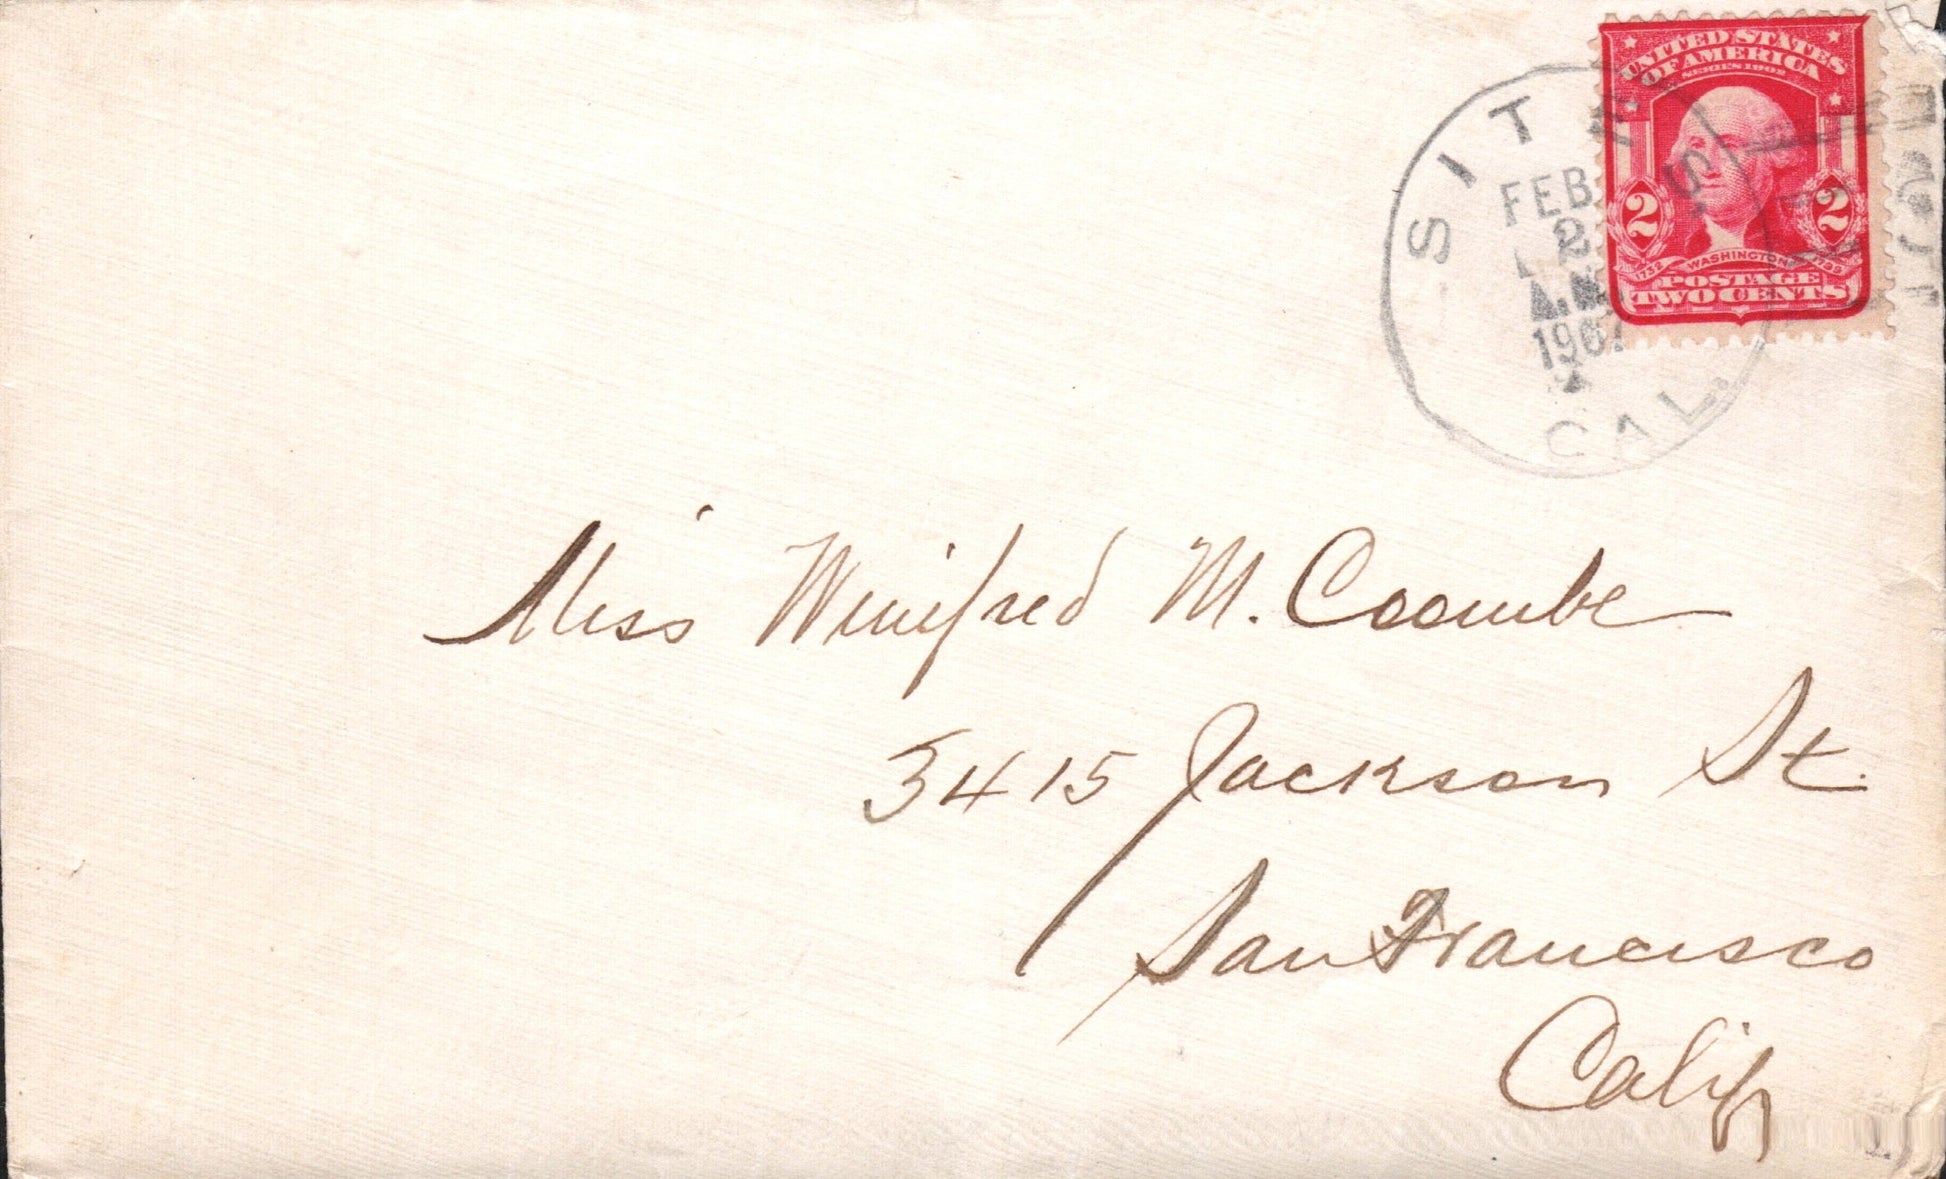 UNITED STATES
OF AMERICA
SERIES 1902
2 2
1732 WASHINGTON 1799
POSTAGE
TWO CENTS
SITES
FEB
2
A.M.
1907
CAL.
Miss Winifred M. Coombe
3415 Jackson St.
San Francisco
Calif